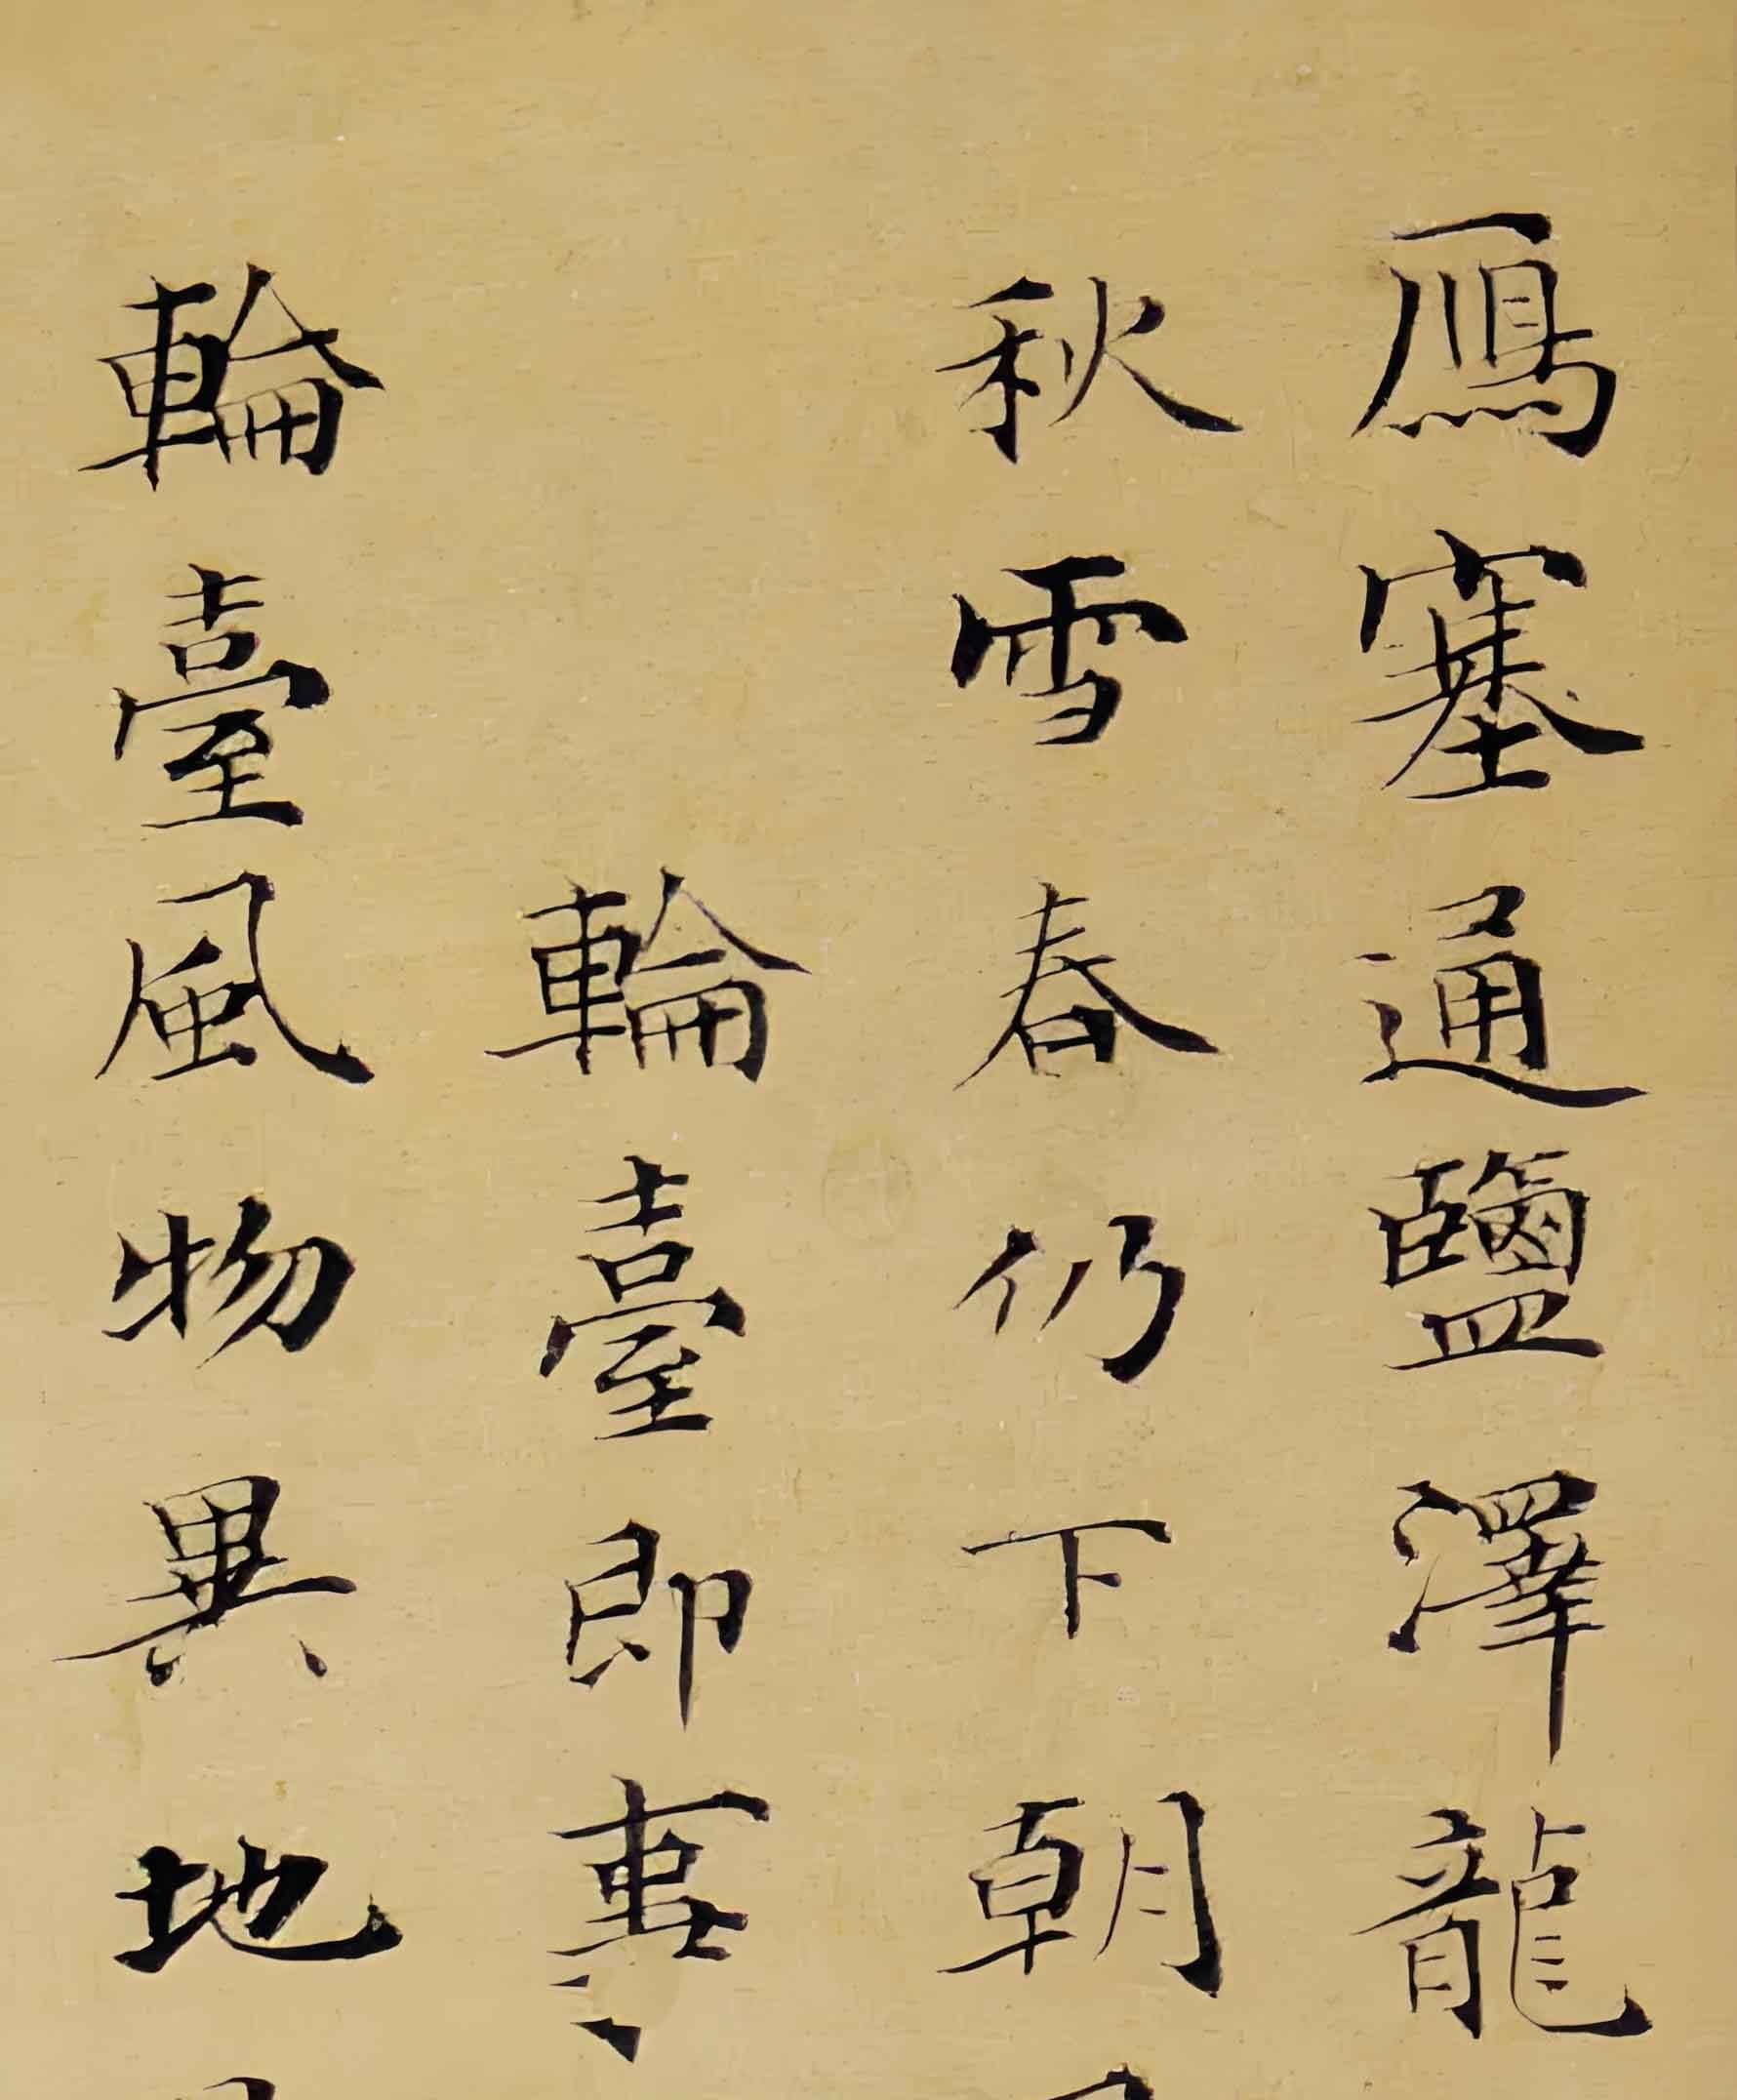 鴈塞通鹽澤龍
秋雪春仍下朝
輪臺即事
輪臺風物異地